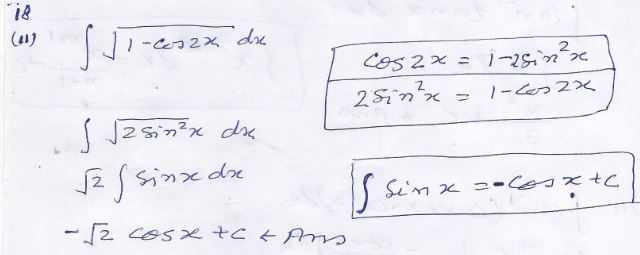 18
(11) ∫ √(1-cos2x) dx
cos2x = 1-2sin²x
2sin²x = 1-cos2x
∫ √(2sin²x) dx
√2 ∫ sinx dx
∫ sinx = -cosx+c
-√2 cosx +c ← Ans